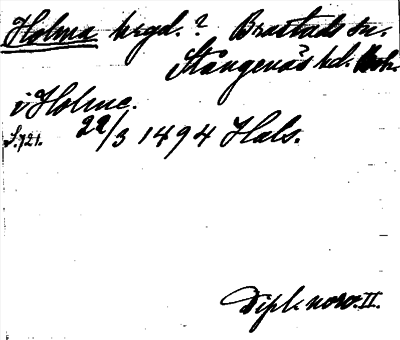 Holma hrgd.? Brastads sn.
Stångenäs hd. Boh.
i Holme.
S. 721. 22/3 1494 Hals.
Dipl. norv. II.